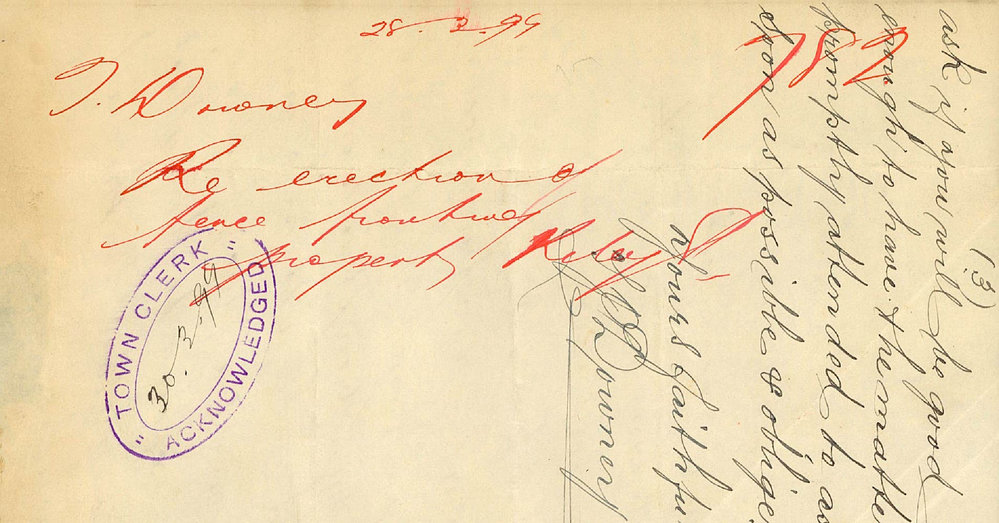 28.3.99
J. Downey
Re erection of
fence fronting
property
" TOWN CLERK "
30.3.99
ACKNOWLEDGED
(3)
ask if you will be good
enough to have the matte
promptly attended to as
soon as possible & oblige
Yours faithfu
Downey